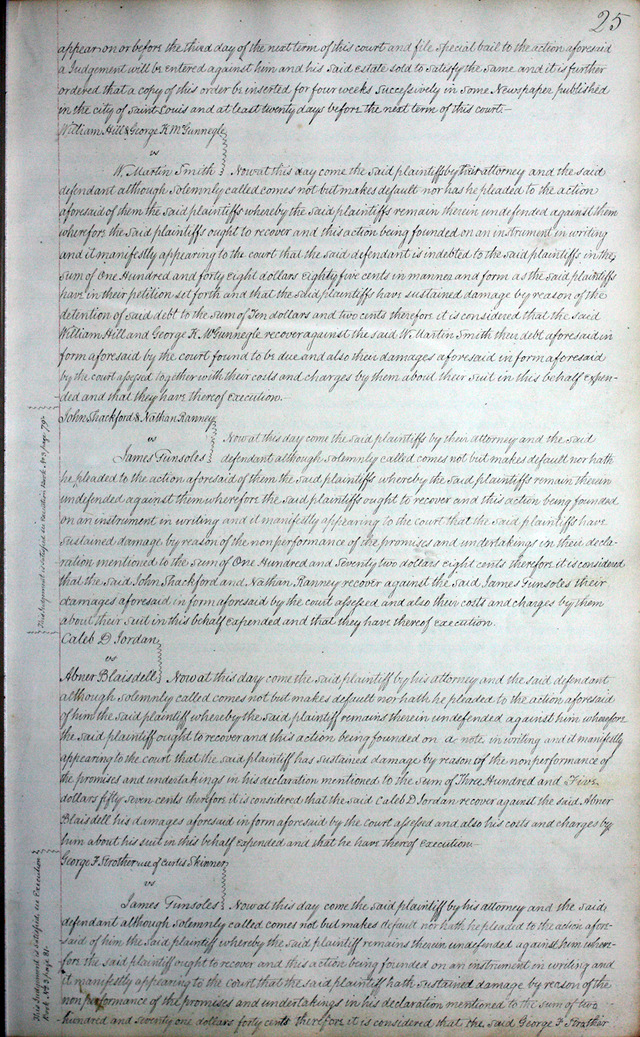 25
appear on or before the third day of the next term of this court and file special bail to the action aforesaid
a Judgement will be entered against him and his said estate sold to satisfy the same and it is further
ordered that a copy of this order be inserted for four weeks successively in some Newspaper published
in the city of Saint Louis and at least twenty days before the next term of this court.—
William Hill & George K McGunnegle
vs
W. Martin Smith Now at this day come the said plaintiffs by their attorney and the said
defendant although solemnly called comes not but makes default nor has he pleaded to the action
aforesaid of them the said plaintiffs whereby the said plaintiffs remain therein undefended against them
wherefore the said plaintiffs ought to recover and this action being founded on an instrument in writing
and it manifestly appearing to the court that the said defendant is indebted to the said plaintiffs in the
sum of One Hundred and forty eight dollars eighty five cents in manner and form as the said plaintiffs
have in their petition set forth and that the said plaintiffs have sustained damage by reason of the
detention of said debt to the sum of Ten dollars and two cents therefore it is considered that the said
William Hill and George K. McGunnegle recover against the said W. Martin Smith their debt aforesaid in
form aforesaid by the court found to be due and also their damages aforesaid in form aforesaid
by the court assessed together with their costs and charges by them about their suit in this behalf expen-
ded and that they have thereof execution.—
John Shackford & Nathan Ranney
vs Now at this day come the said plaintiffs by their attorney and the said
James Funsoles defendant although solemnly called comes not but makes default nor hath
he pleaded to the action aforesaid of them the said plaintiffs whereby the said plaintiffs remain therein
undefended against them wherefore the said plaintiffs ought to recover and this action being founded
on an instrument in writing and it manifestly appearing to the court that the said plaintiffs have
sustained damage by reason of the nonperformance of the promises and undertakings in their decla-
ration mentioned to the sum of One Hundred and Seventy two dollars eight cents therefore it is considered
that the said John Shackford and Nathan Ranney recover against the said James Funsoles their
damages aforesaid in form aforesaid by the court assessed and also their costs and charges by them
about their suit in this behalf expended and that they have thereof execution.
This Judgement is satisfied, see Execution Book No 3 page 79.
Caleb D Jordan
vs
Abner Blaisdell Now at this day come the said plaintiff by his attorney and the said defendant
although solemnly called comes not but makes default nor hath he pleaded to the action aforesaid
of him the said plaintiff whereby the said plaintiff remains therein undefended against him wherefore
the said plaintiff ought to recover and this action being founded on a note in writing and it manifestly
appearing to the court that the said plaintiff has sustained damage by reason of the nonperformance of
the promises and undertakings in his declaration mentioned to the sum of Three Hundred and Five
dollars fifty seven cents therefore it is considered that the said Caleb D Jordan recover against the said Abner
Blaisdell his damages aforesaid in form aforesaid by the court assessed and also his costs and charges by
him about his suit in this behalf expended and that he have thereof execution.—
George F Strother use of Curtis Skinner
vs
James Funsoles Now at this day come the said plaintiff by his attorney and the said
defendant although solemnly called comes not but makes default nor hath he pleaded to the action afore-
said of him the said plaintiff whereby the said plaintiff remains therein undefended against him where-
fore the said plaintiff ought to recover and this action being founded on an instrument in writing and
it manifestly appearing to the court that the said plaintiff hath sustained damage by reason of the
non performance of the promises and undertakings in his declaration mentioned to the sum of two
hundred and seventy one dollars forty cents therefore it is considered that the said George F Strother
This Judgment is satisfied, see Execution
Book No 3 page 81.